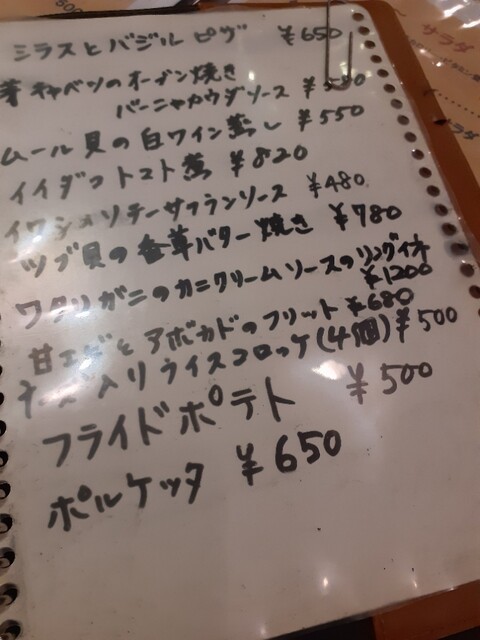 シラスとバジルピザ ¥650
芽キャベツのオーブン焼き
バーニャカウダソース
ムール貝の白ワイン蒸し ¥550
イイダコトマト煮 ¥820
イワシメソテーサフランソース ¥480
ツブ貝の香草バター焼き ¥780
ワタリガニのカニクリームソースのリングイネ
¥1200
甘エビとアボカドのフリット ¥680
チーズ入りライスコロッケ(4個) ¥500
フライドポテト ¥500
ポルケッタ ¥650
サラダ